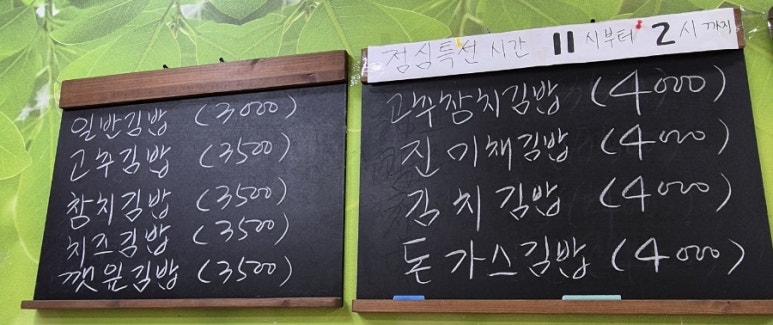 일반김밥 (3000)
고추김밥 (3500)
참치김밥 (3500)
치즈김밥 (3500)
깻잎김밥 (3500)
점심특선 시간 11시부터 2시까지
고추참치김밥 (4000)
진미채김밥 (4000)
김치김밥 (4000)
돈가스김밥 (4000)